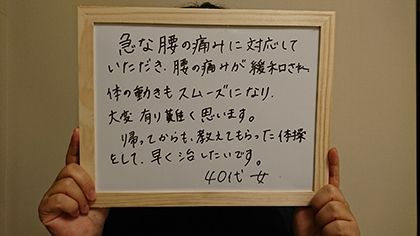 急な腰の痛みに対応して
いただき、腰の痛みが緩和され、
体の動きもスムーズになり、
大変有り難く思います。
帰ってからも、教えてもらった体操
をして、早く治したいです。
40代 女